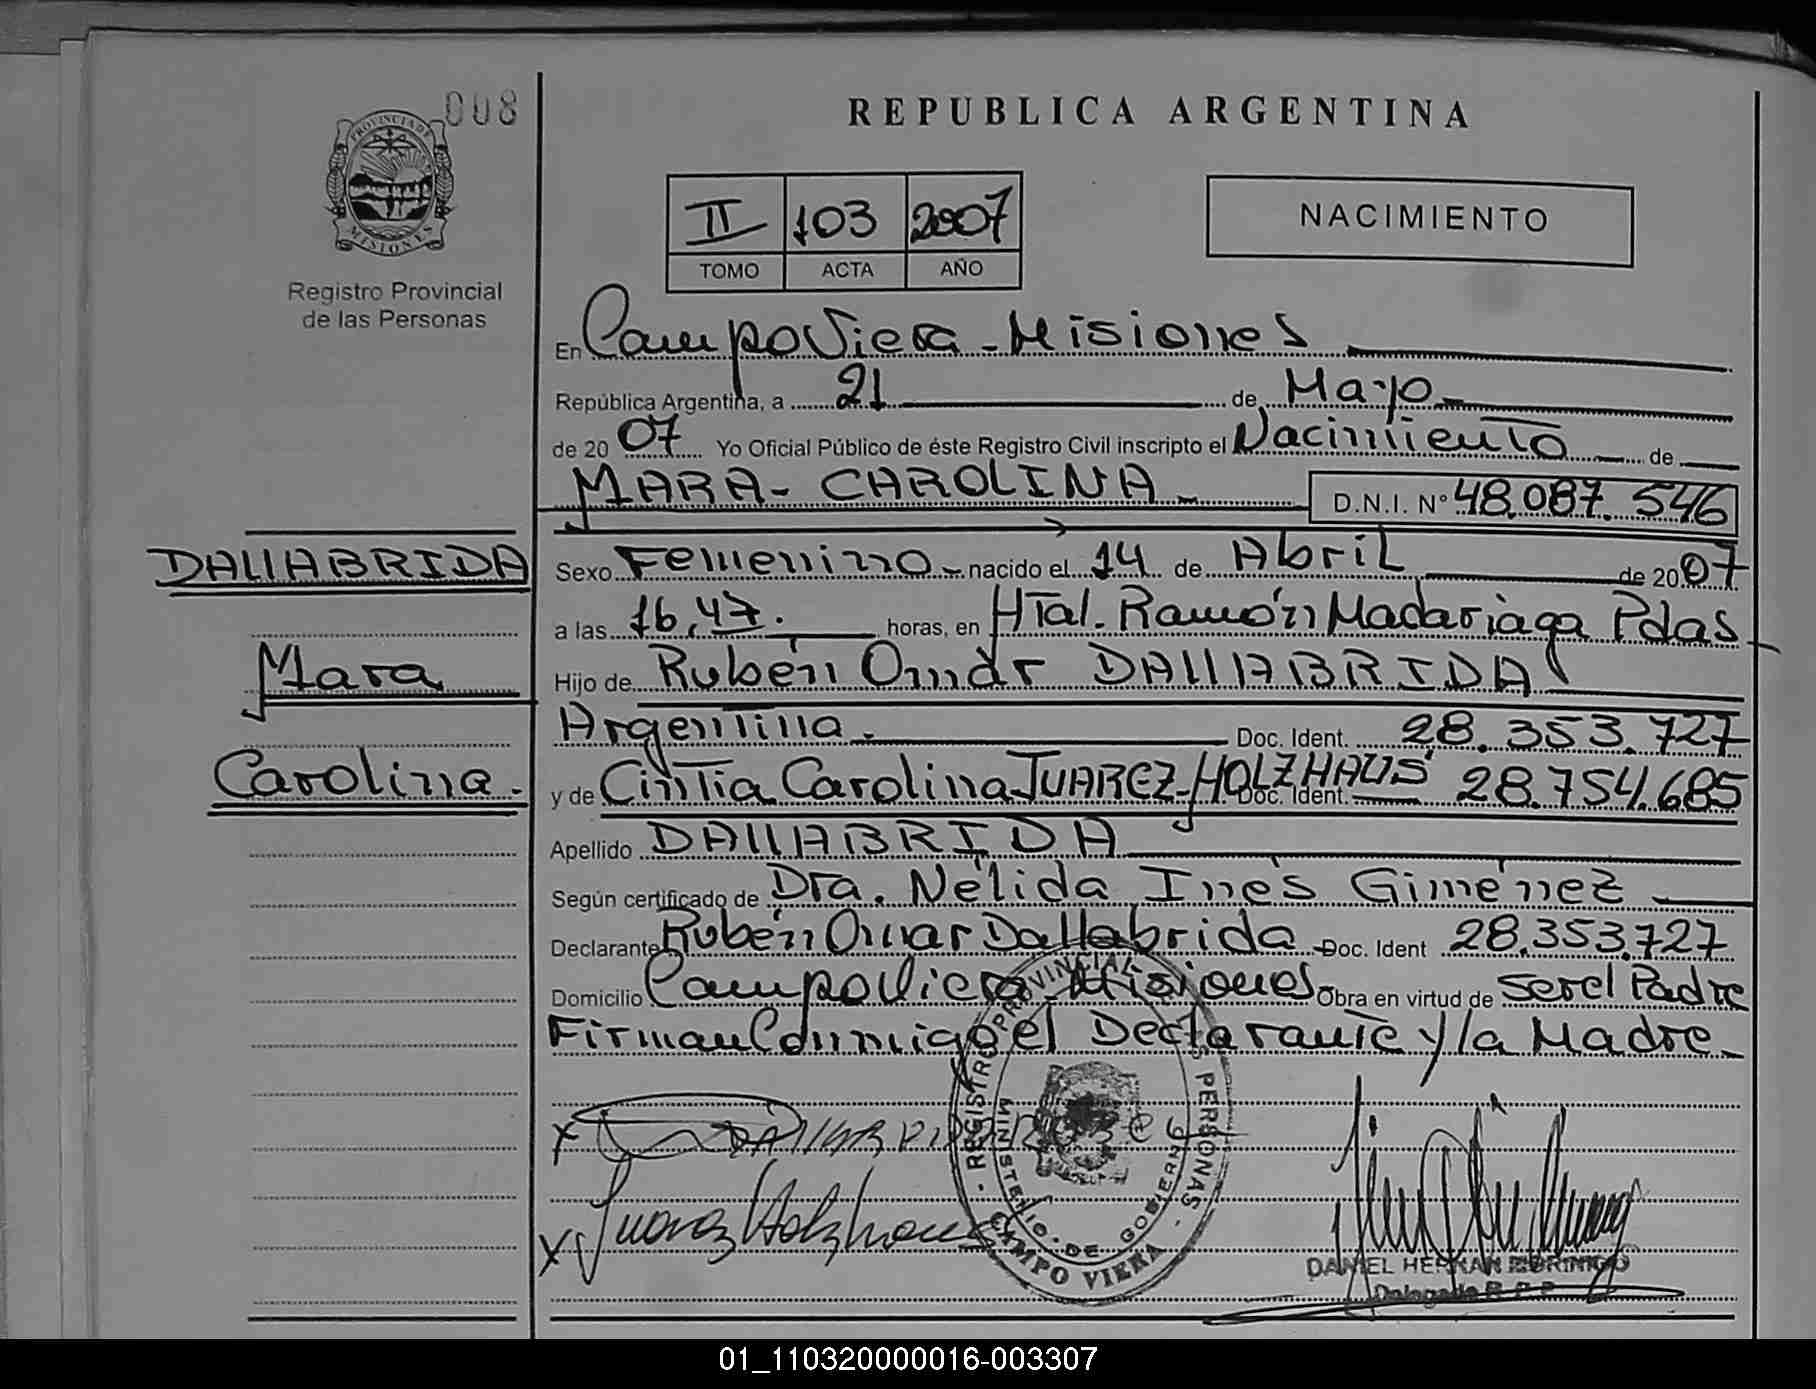 008
PROVINCIA DE
MISIONES
Registro Provincial
de las Personas
REPUBLICA ARGENTINA
II 103 2007
TOMO ACTA AÑO
NACIMIENTO
En Campo Viera - Misiones
República Argentina, a 21 de Mayo
de 2007 Yo Oficial Público de éste Registro Civil inscripto el Nacimiento de
MARA - CAROLINA - D.N.I. N° 48.087.546
DALLABRIDA
Mara
Carolina.
Sexo Femenino - nacido el 14 de Abril de 2007
a las 16,47. horas, en Htal. Ramón Madariaga Pdas
Hijo de Rubén Omar DALLABRIDA
Argentina. Doc. Ident. 28.353.727
y de Cintia Carolina JUAREZ-HOLZHAUS Doc. Ident. 28.754.685
Apellido DALLABRIDA
Según certificado de Dra. Nélida Inés Giménez
Declarante Rubén Omar Dallabrida - Doc. Ident 28.353.727
Domicilio Campo Viera - Misiones. Obra en virtud de ser el Padre
Firman Conmigo el Declarante y la Madre.
X DALLABRIDA
X Juarez Holzhaus
REGISTRO PROVINCIAL PERSONAS
MINISTERIO DE GOBIERNO
CAMPO VIERA
DANIEL HERNAN MORINIGO
Delegado R.P.P
01_110320000016-003307